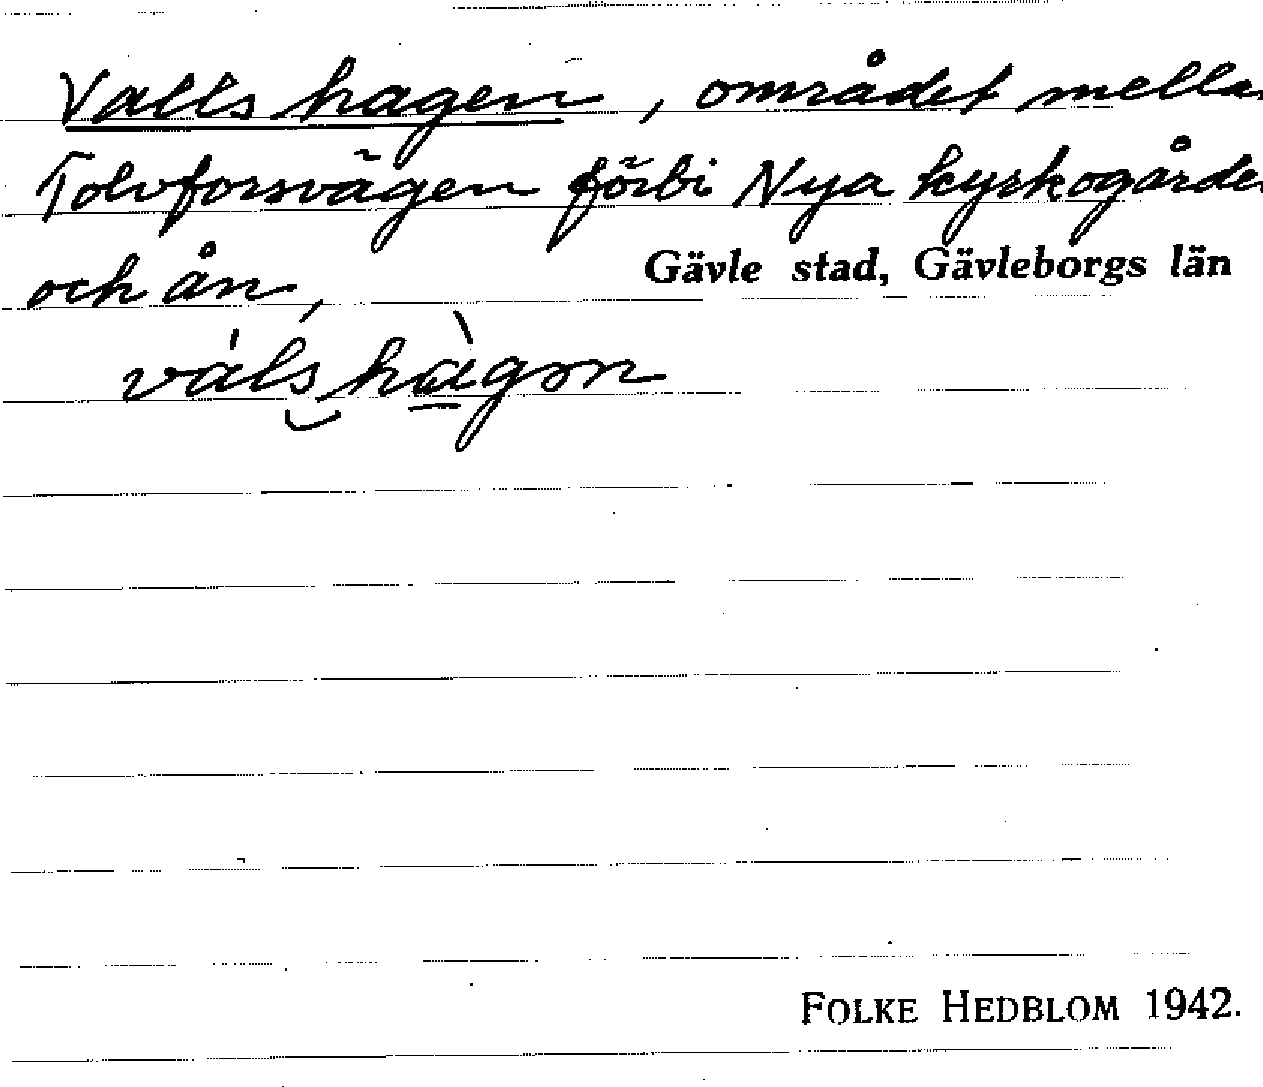 Valls hagen, området mella
Tolvforsvägen förbi Nya kyrkogårde
och ån,
Gävle stad, Gävleborgs län
váls hàgon
FOLKE HEDBLOM 1942.